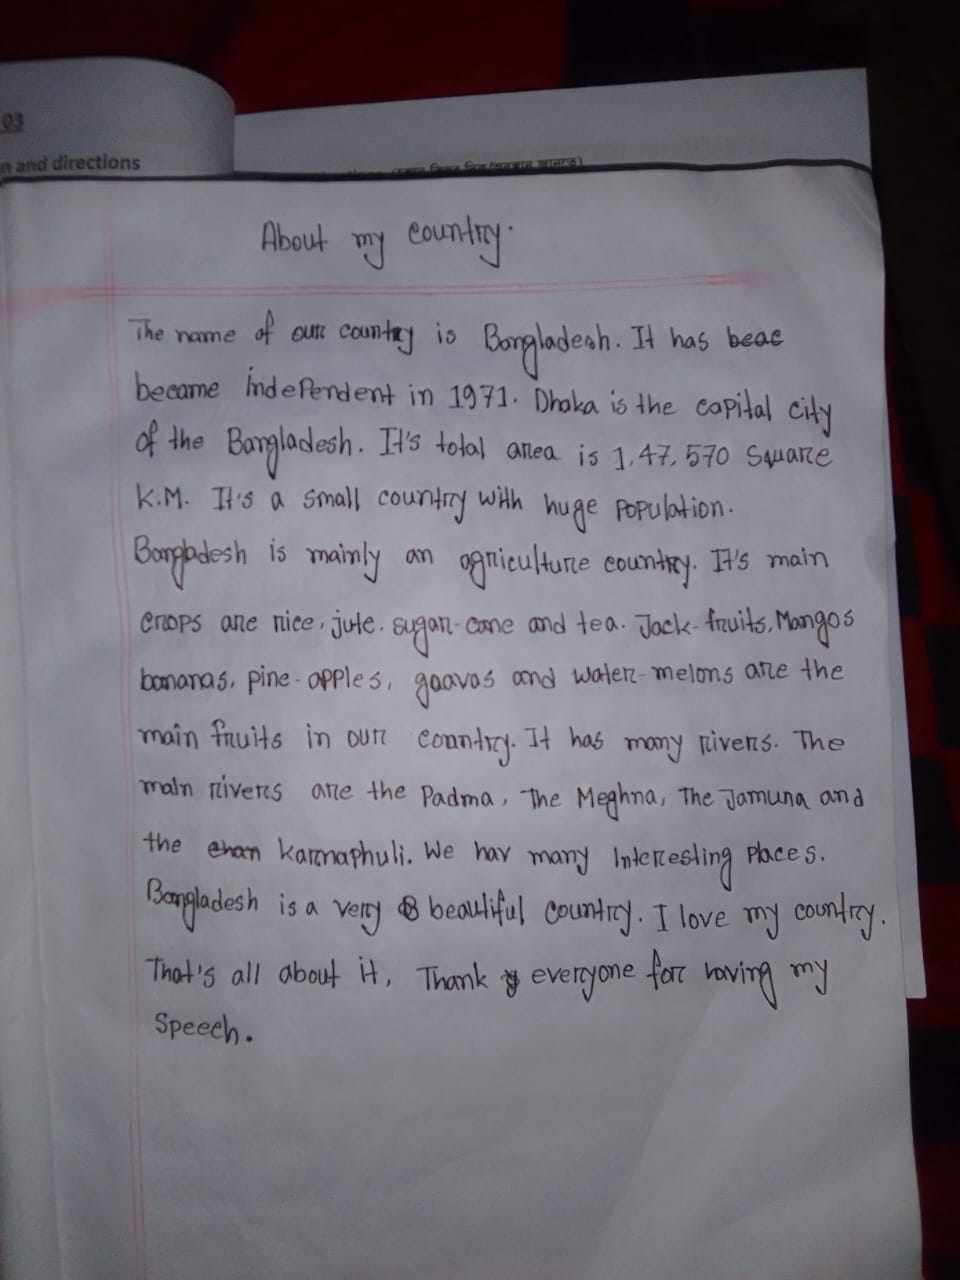 03
n and directions
About my country.
The name of our country is Bangladesh. It has beac
became independent in 1971. Dhaka is the capital city
of the Bangladesh. It's total area is 1,47,570 Square
K.M. It's a small country with huge population.
Bangladesh is mainly an agriculture country. It's main
crops are rice, jute, sugar-cane and tea. Jack-fruits, Mangos
bananas, pine-apples, gaavas and water-melons are the
main fruits in our coantry. It has many rivers. The
maln rivers are the Padma, The Meghna, The Jamuna and
the chan karnaphuli. We hav many Interesting places.
Bangladesh is a very B beautiful country. I love my country.
That's all about it, Thank y everyone for having my
Speech.